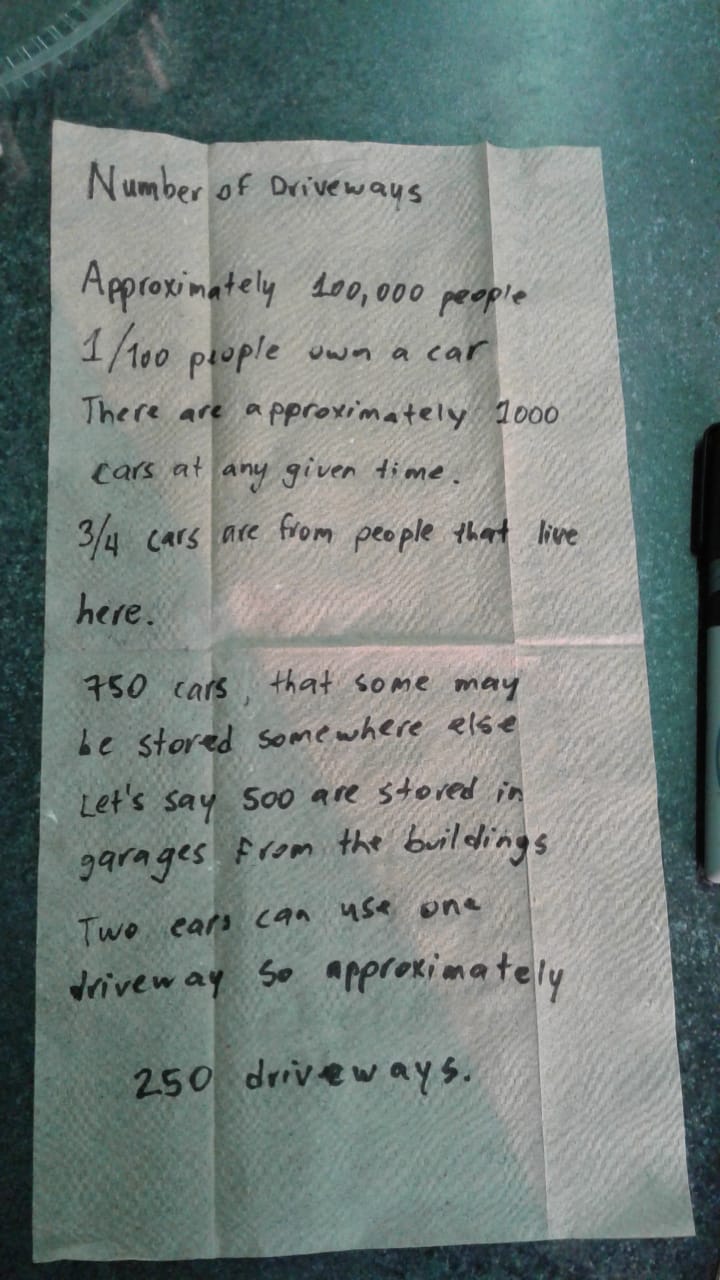 Number of Driveways
Approximately 100,000 people
1/100 people own a car
There are approximately 1000
cars at any given time.
3/4 cars are from people that live
here.
750 cars, that some may
be stored somewhere else
Let's say 500 are stored in
garages from the buildings
Two cars can use one
driveway so approximately
250 driveways.